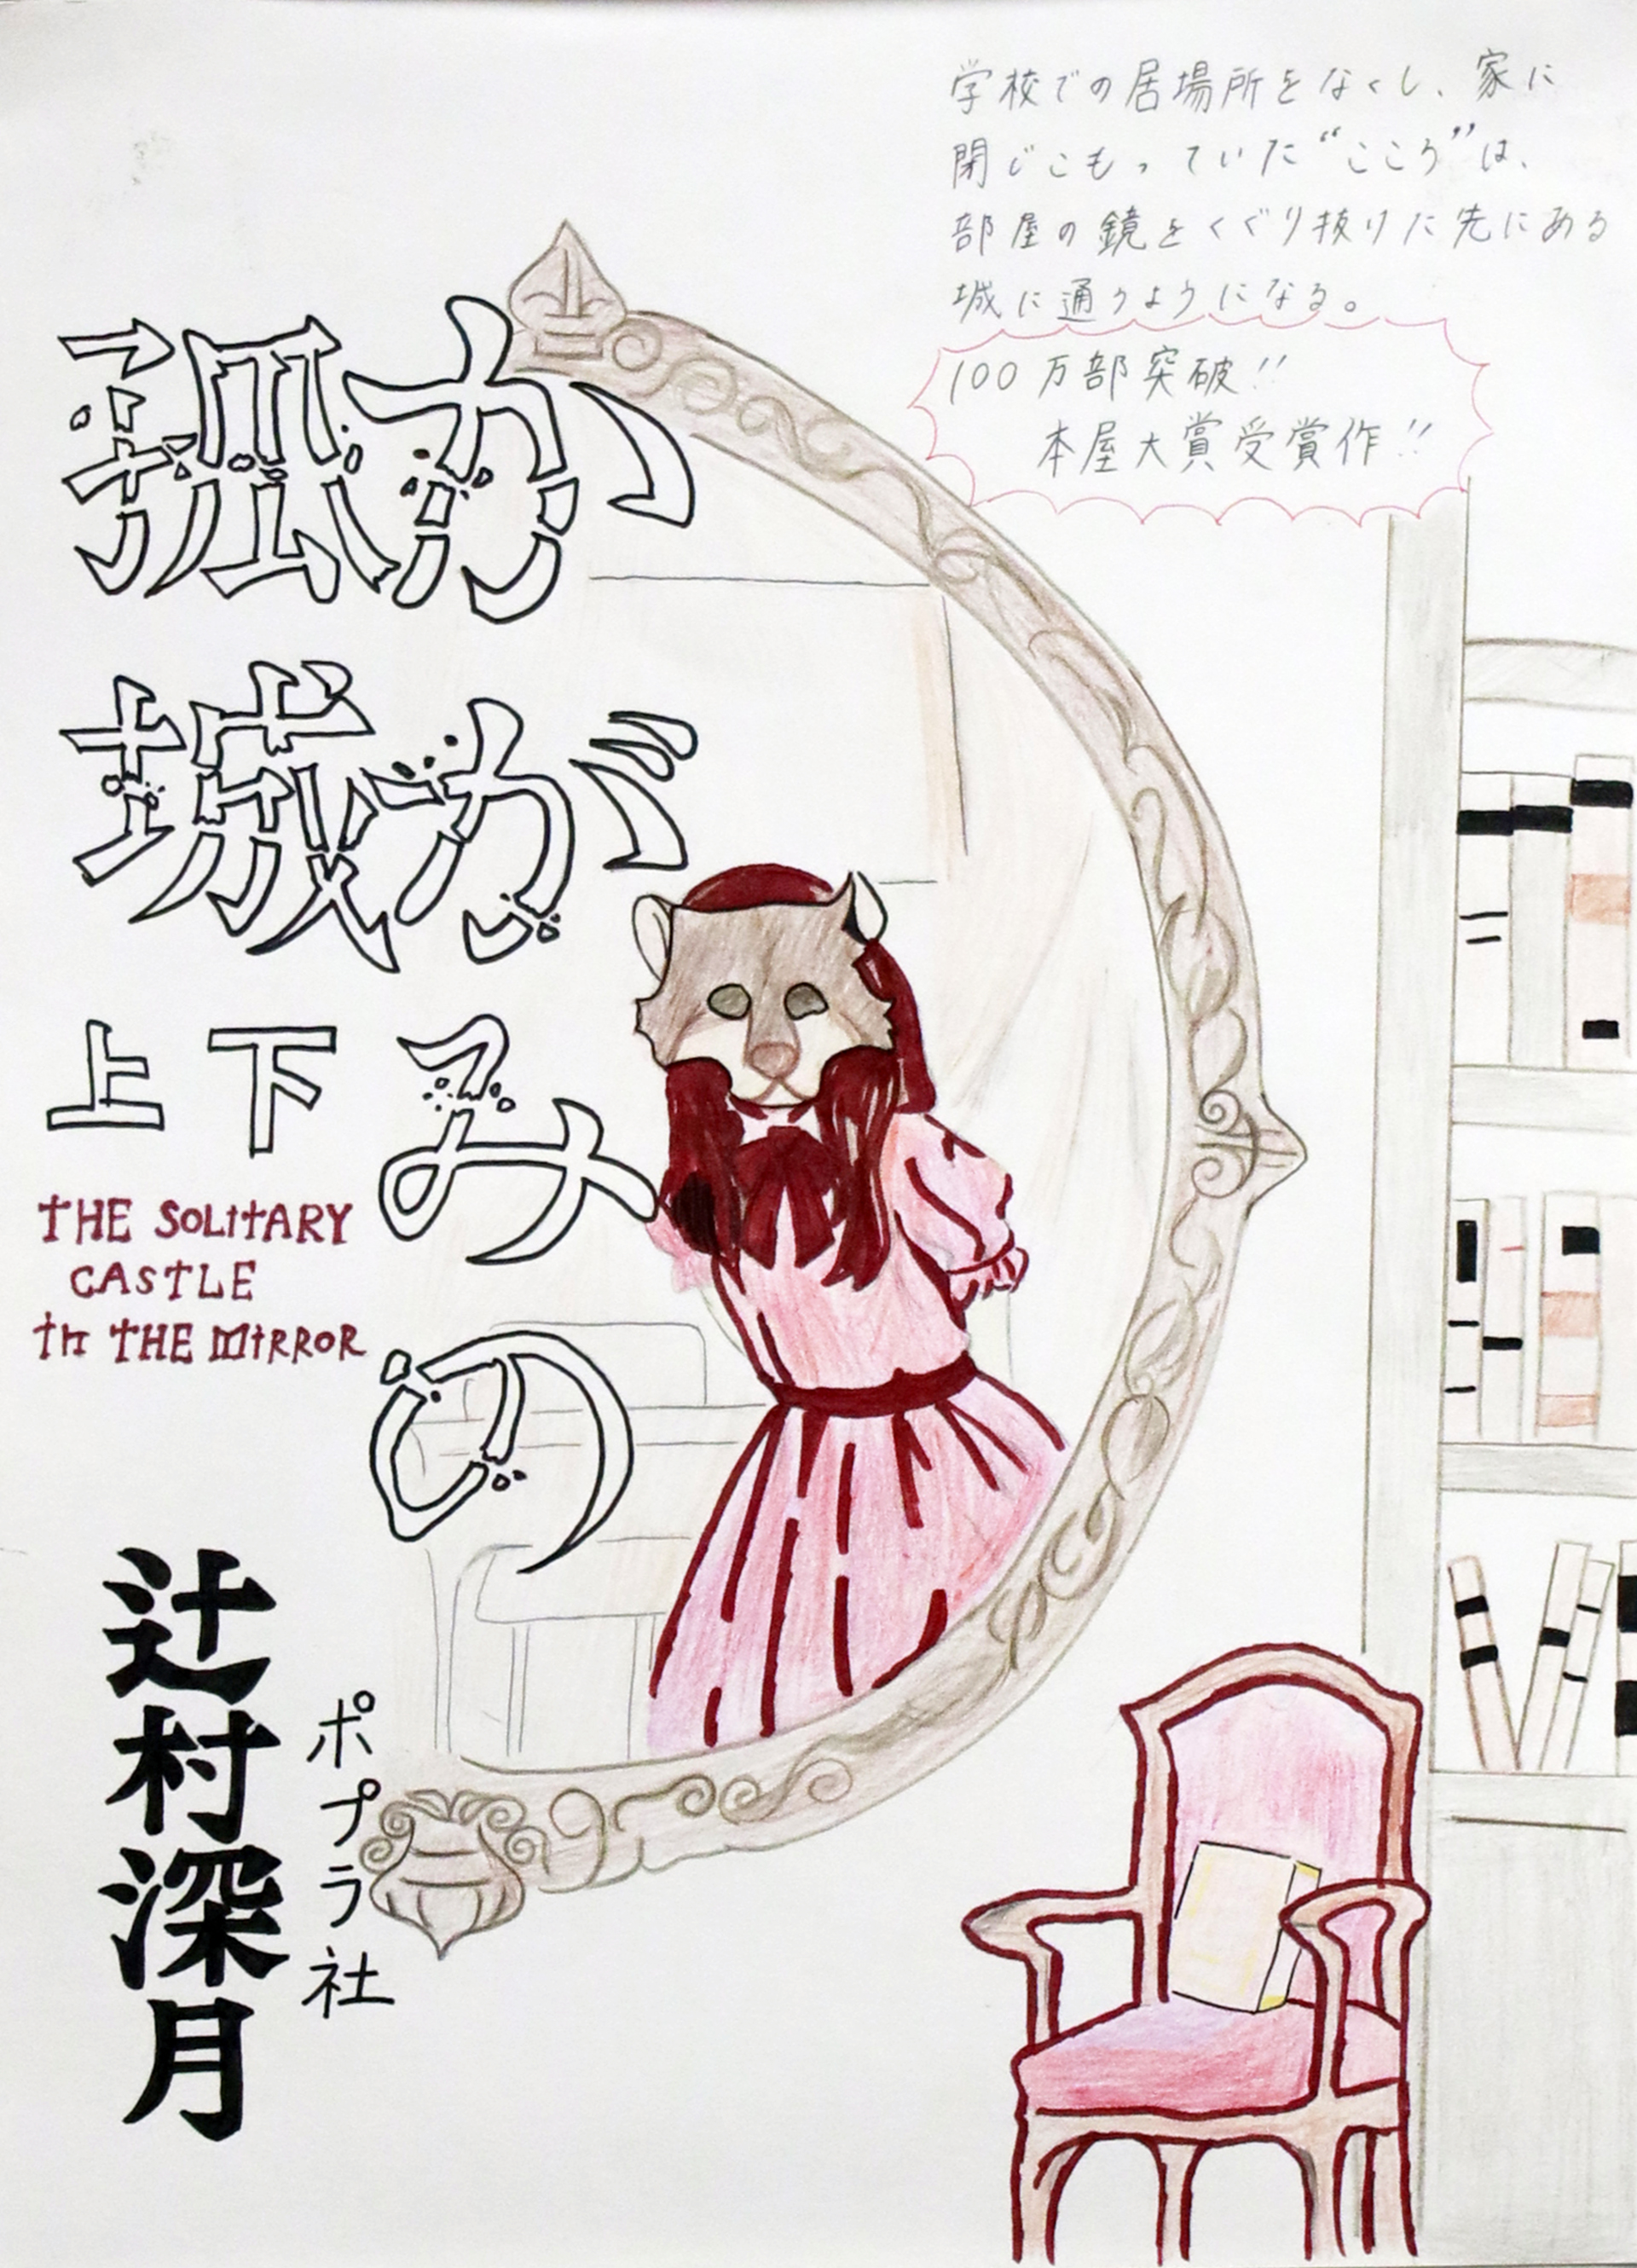 学校での居場所をなくし、家に
閉じこもっていた“こころ”は、
部屋の鏡をくぐり抜けた先にある
城に通うようになる。
100万部突破!!
本屋大賞受賞作!!
かがみの
孤城
上下
THE SOLITARY
CASTLE
IN THE MIRROR
辻村深月
ポプラ社